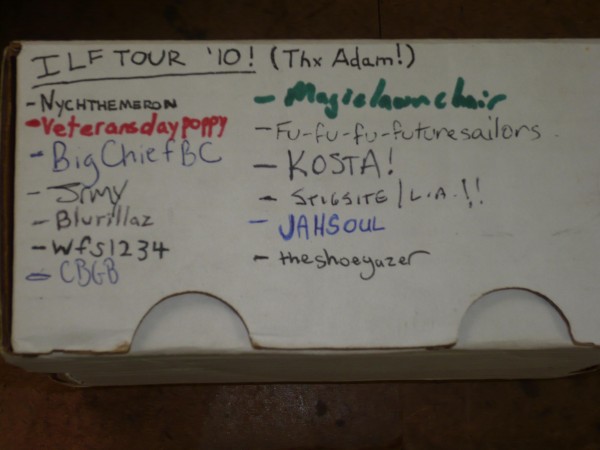 ILF TOUR '10! (Thx Adam!)
- NYCHTHEMERON
- Veteransdaypoppy
- BigChiefBC
- Jrmy
- Blurillaz
- wfs1234
- CBGB
- Magiclawnchair
- Fu-fu-fu-futuresailors
- KOSTA!
- STIGSITE/L.A.!!
- JAHSOUL
- theshoegazer